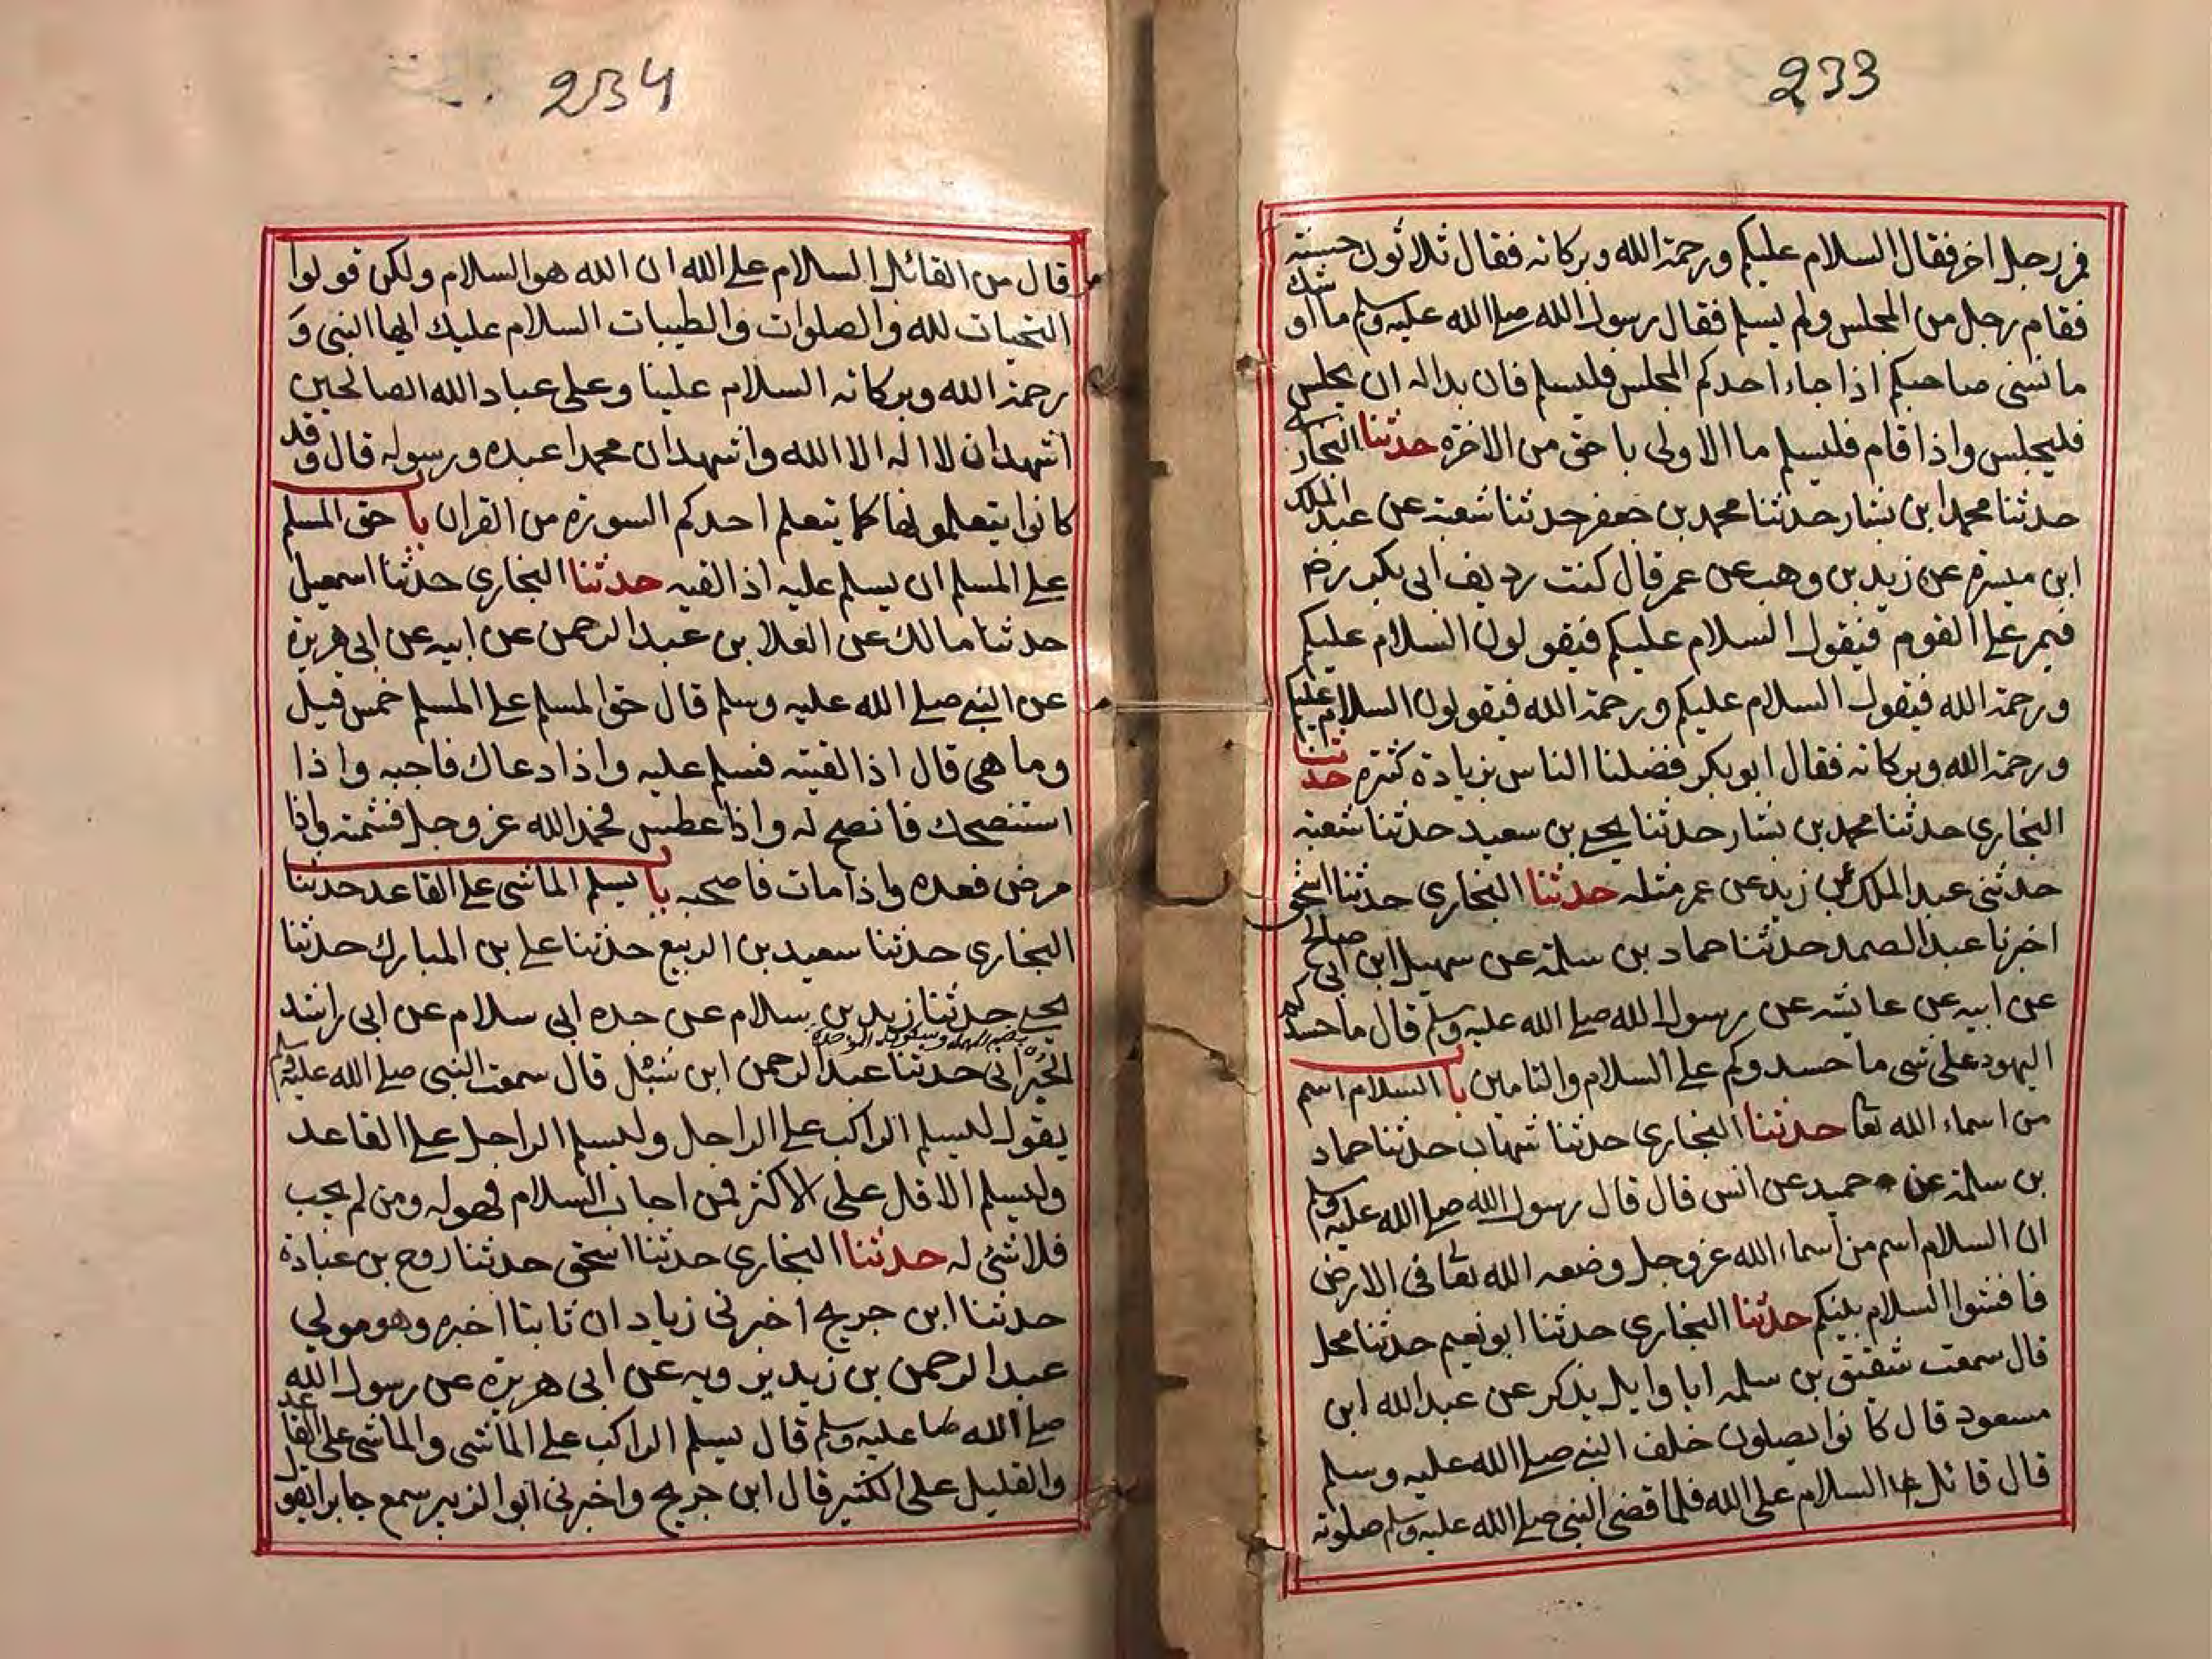 233
فمر رجل اخر فقال السلام عليكم ورحمة الله وبركاته فقال ثلاثون حسنة
فقام رجل من المجلس ولم يسلم فقال رسول الله صلى الله عليه وسلم ما اوشك
ما نسى صاحبكم اذا جاء احدكم المجلس فليسلم فان بدا له ان يجلس
فليجلس واذا قام فليسلم ما الاولى باحق من الاخرة حدثنا البخارى
حدثنا محمد ابن بشار حدثنا محمد بن جعفر حدثنا شعبة عن عبد الملك
ابن ميسرة عن زيد بن وهب عن عمر قال كنت رديف ابى بكر رض
فيمر على القوم فيقول السلام عليكم فيقولون السلام عليكم
ورحمة الله فيقول السلام عليكم ورحمة الله فيقولون السلام عليكم
ورحمة الله وبركاته فقال ابو بكر فضلنا الناس بزيادة كثيرة حدثنا
البخارى حدثنا محمد بن بشار حدثنا يحيى بن سعيد حدثنا شعبة
حدثنى عبد الملك عن زيد عن عمر مثله حدثنا البخارى حدثنا اسحق
اخبرنا عبد الصمد حدثنا حماد بن سلمة عن سهيل ابن ابى صالح
عن ابيه عن عايشه عن رسول الله صلى الله عليه وسلم قال ما حسدكم
اليهود على شى ما حسدوكم على السلام والتامين با السلام اسم
من اسماء الله تعا حدثنا البخارى حدثنا شهاب حدثنا حماد
بن سلمة عن حميد عن انس قال قال رسول الله صلى الله عليه وسلم
ان السلام اسم من اسماء الله عز وجل وضعه الله تعا فى الارض
فافشوا السلام بينكم حدثنا البخارى حدثنا ابو نعيم حدثنا محل
قال سمعت شقيق بن سلمه ابا وايل يذكر عن عبد الله ابن
مسعود قال كانوا يصلون خلف النبى صلى الله عليه وسلم
قال قائل السلام على الله فلما قضى النبى صلى الله عليه وسلم صلوته
234
قال من القائل السلام على الله ان الله هو السلام ولكن قولوا
التحيات لله والصلوات والطيبات السلام عليك ايها النبى و
رحمة الله وبركاته السلام علينا وعلى عباد الله الصالحين
اشهد ان لا اله الا الله واشهد ان محمدا عبده ورسوله قال وقد
كانوا يتعلمونها كما يتعلم احدكم السورة من القران با حق المسلم
على المسلم ان يسلم عليه اذا لقيه حدثنا البخارى حدثنا اسمعيل
حدثنا مالك عن العلا بن عبد الرحمن عن ابيه عن ابى هريرة
عن النبى صلى الله عليه وسلم قال حق المسلم على المسلم خمس قيل
وما هى قال اذا لقيته فسلم عليه واذا دعاك فاجبه واذا
استنصحك فانصح له واذا عطس فحمد الله عز وجل فشمته واذا
مرض فعده واذا مات فاصحبه با يسلم الماشى على القاعد حدثنا
البخارى حدثنا سعيد بن الربيع حدثنا على بن المبارك حدثنا
يحيى حدثنا زيد بن سلام عن جده ابى سلام عن ابى راشد
بضم المهملة وسكون الموحدة
الحبرانى حدثنا عبد الرحمن ابن شبل قال سمعت النبى صلى الله عليه وسلم
يقول ليسلم الراكب على الراجل وليسلم الراجل على القاعد
وليسلم الاقل على الاكثر فمن اجاب السلام فهو له ومن لم يجب
فلا شئ له حدثنا البخارى حدثنا اسحق حدثنا روح بن عبادة
حدثنا ابن جريج اخبرنى زياد ان ثابتا اخبره وهو مولى
عبد الرحمن بن زيد يرويه عن ابى هريرة عن رسول الله
صلى الله عليه وسلم قال يسلم الراكب على الماشى والماشى على القاعد
والقليل على الكثير قال ابن جريج واخبرنى ابو الزبير سمع جابرا يقول